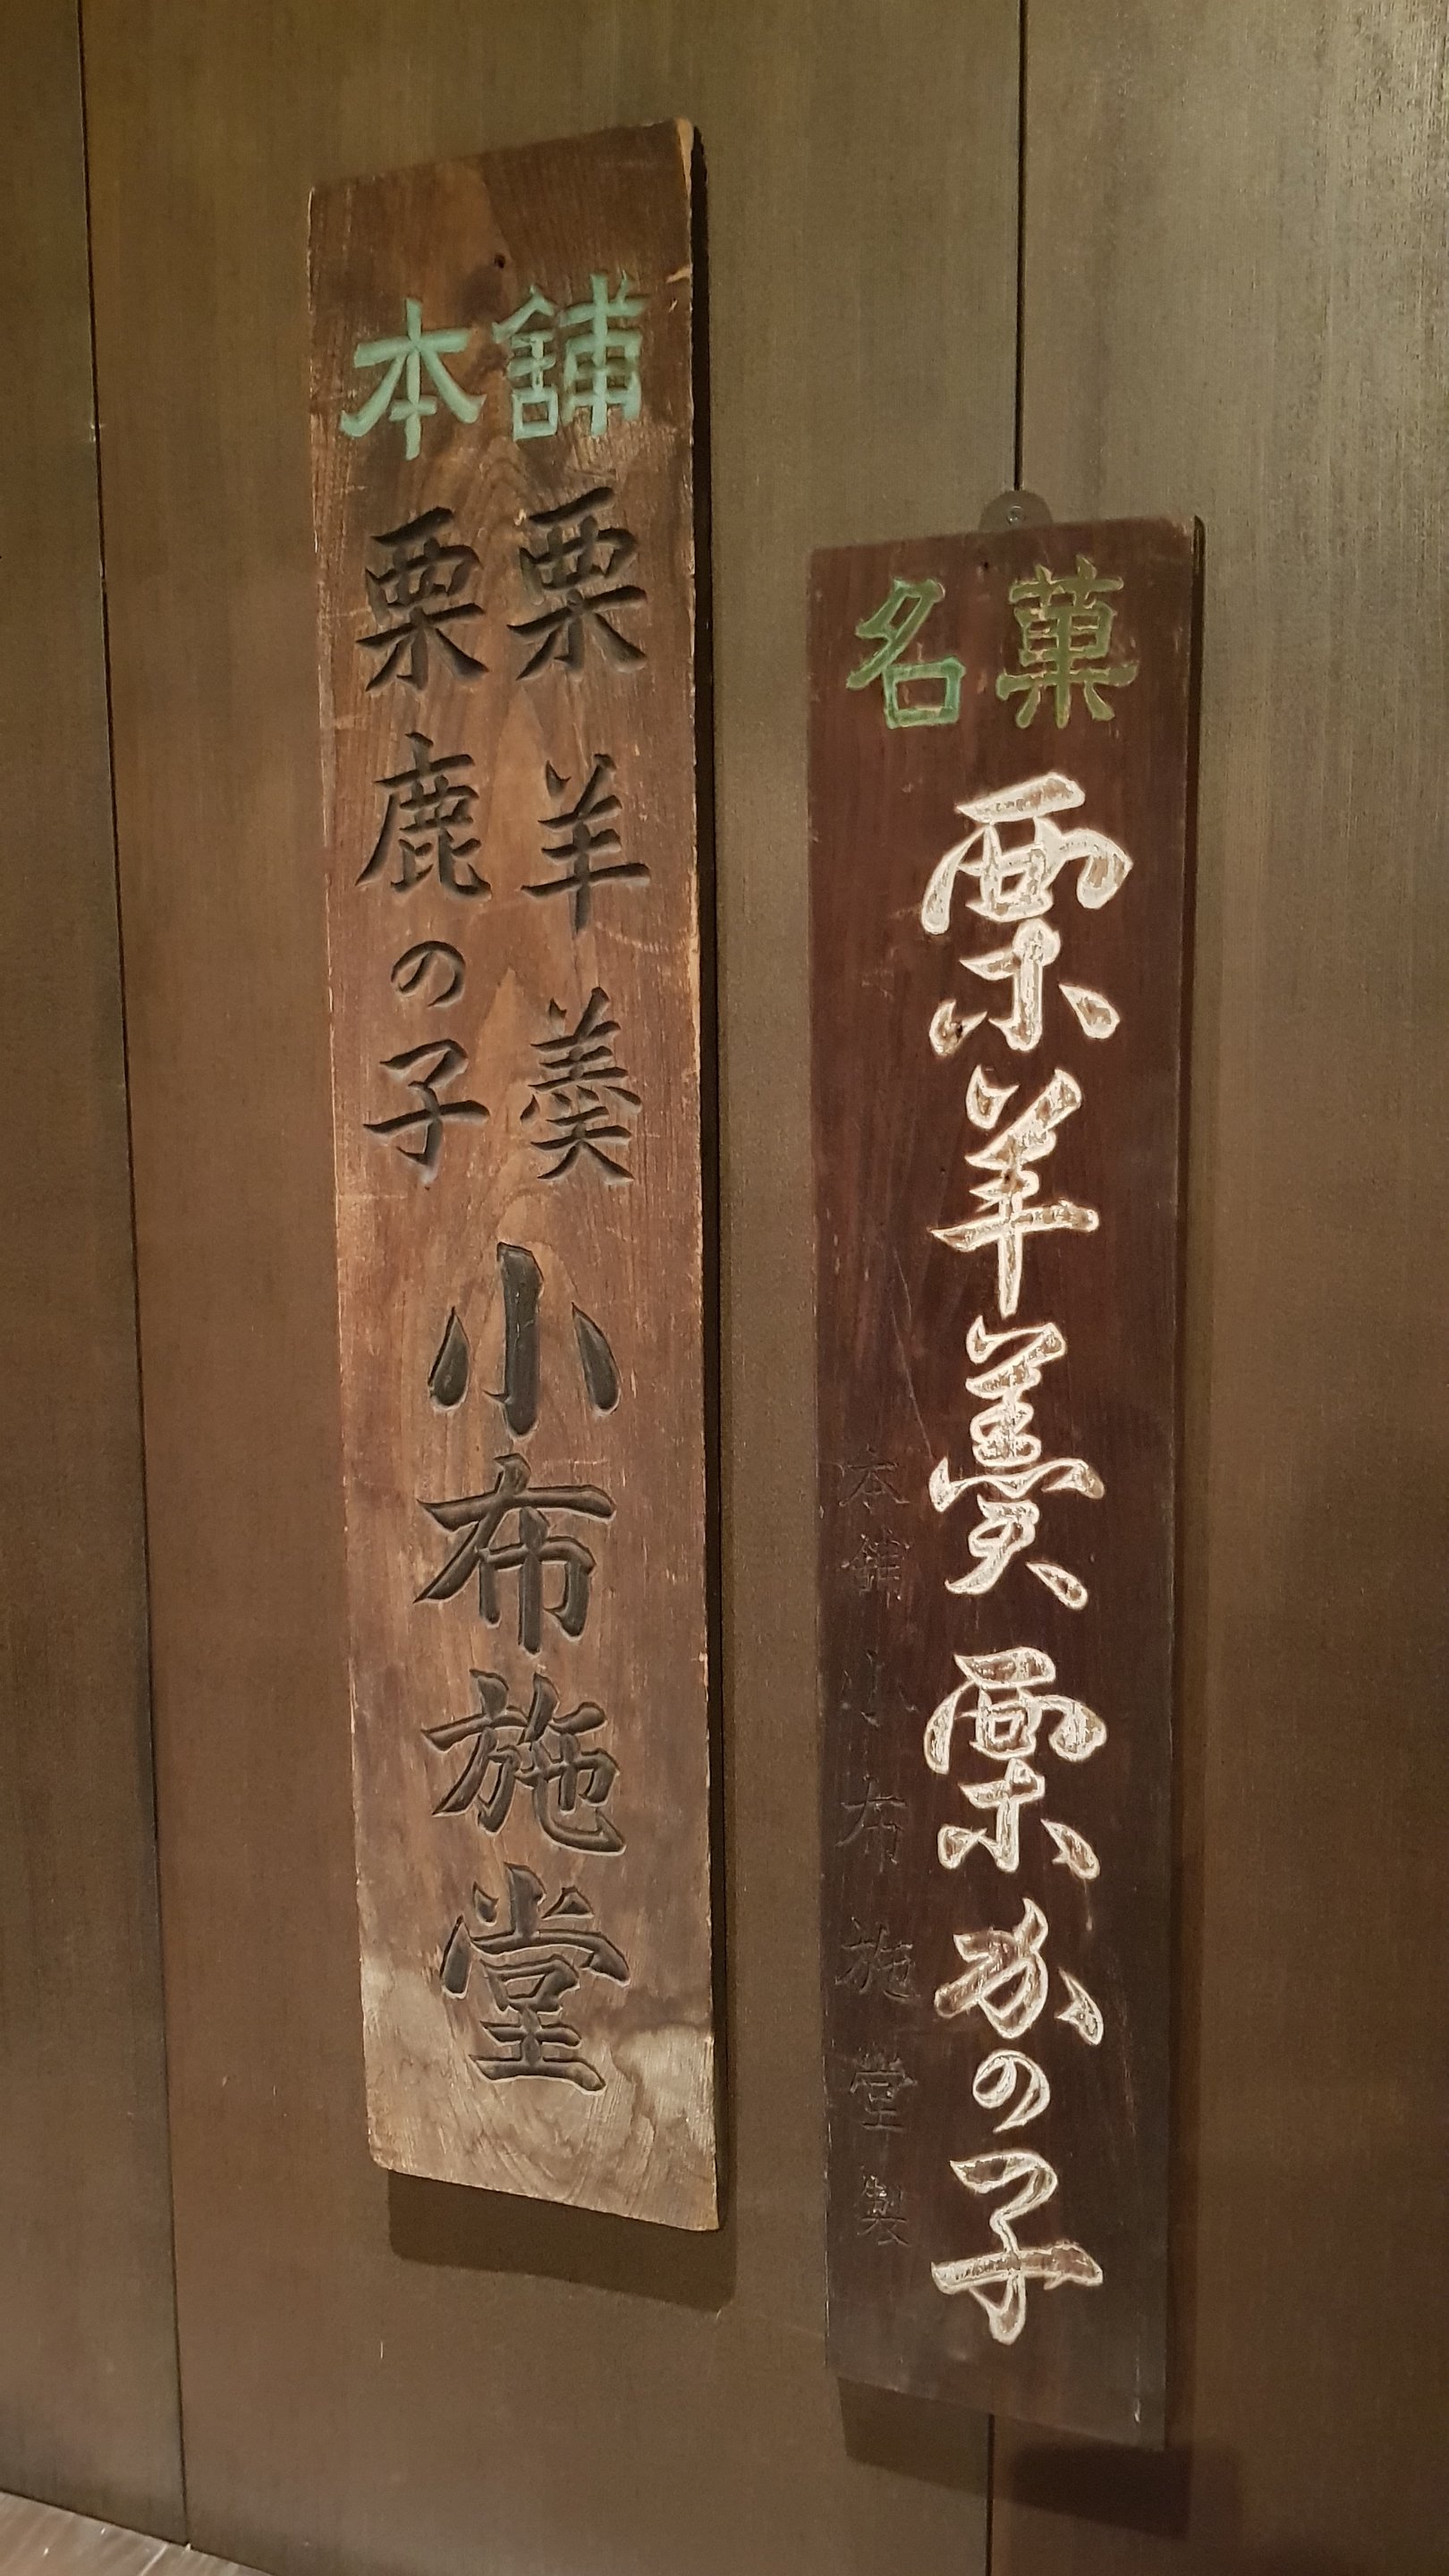 本舗
栗羊羹
栗鹿の子
小布施堂
名菓
栗羊羹 栗かの子
本舗 小布施堂製